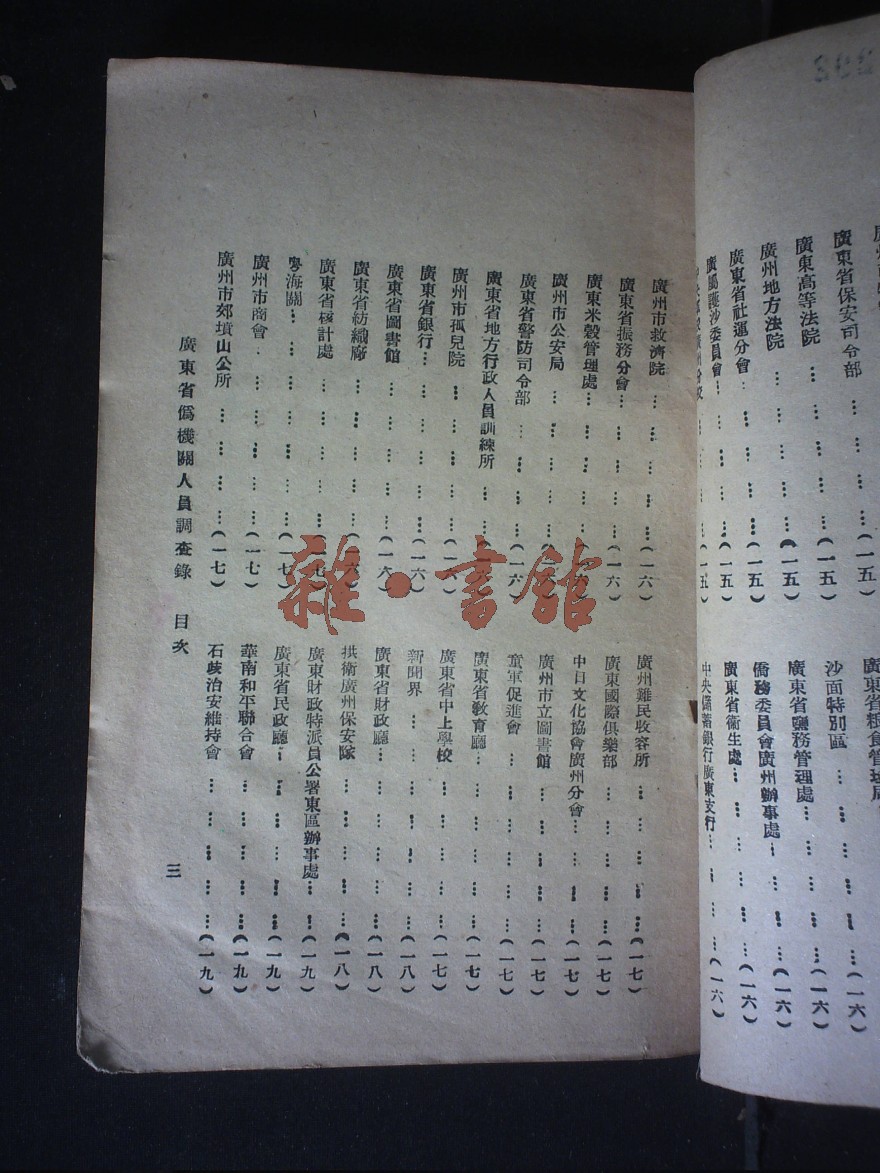 廣東省保安司令部 … … … … (一五)
廣東高等法院 … … … … … (一五)
廣州地方法院 … … … … … (一五)
廣東省社運分會 … … … … … (一五)
廣屬護沙委員會 … … … … … (一五)
沙面特別區 … … … … … (一六)
廣東省鹽務管理處 … … … … (一六)
僑務委員會廣州辦事處 … … … (一六)
廣東省衛生處 … … … … … (一六)
中央儲蓄銀行廣東支行 … … … … (一六)
廣州市救濟院 … … … … … (一六)
廣東省振務分會 … … … … … (一六)
廣東米穀管理處 … … … … … (一六)
廣州市公安局 … … … … … (一六)
廣東省警防司令部 … … … … (一六)
廣東省地方行政人員訓練所 … … (一六)
廣州市孤兒院 … … … … … (一六)
廣東省銀行 … … … … … … (一六)
廣東省圖書館 … … … … … (一六)
廣東省紡織廠 … … … … … (一六)
廣東省核計處 … … … … … (一七)
粵海關 … … … … … … (一七)
廣州市商會 … … … … … (一七)
廣州市郊墳山公所 … … … … (一七)
廣州難民收容所 … … … … (一七)
廣東國際俱樂部 … … … … (一七)
中日文化協會廣州分會 … … … (一七)
廣州市立圖書館 … … … … (一七)
童軍促進會 … … … … … (一七)
廣東省敎育廳 … … … … … (一七)
廣東省中上學校 … … … … (一七)
新聞界 … … … … … … (一八)
廣東省財政廳 … … … … … (一八)
拱衛廣州保安隊 … … … … (一八)
廣東財政特派員公署東區辦事處 … … (一九)
廣東省民政廳 … … … … … (一九)
華南和平聯合會 … … … … (一九)
石岐治安維持會 … … … … (一九)
廣東省僞機關人員調查錄 目次
三
雜·書館